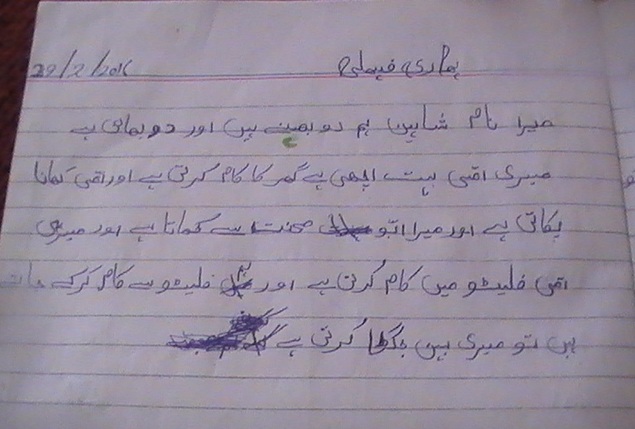 ہماری فیملی 29/2/2016
میرا نام شاہین ہم دو بہنے ہیں اور دو بھائی ہے
میری امی بہت اچھی ہے گھر کا کام کرتی ہے اور امی کھانا
پکاتی ہے اور میرا ابو محنت سے کماتا ہے اور میری
امی فلیٹو میں کام کرتی ہے اور فلیٹو سے کام کرکے جات
ہیں تو میری بہن کرتی ہے